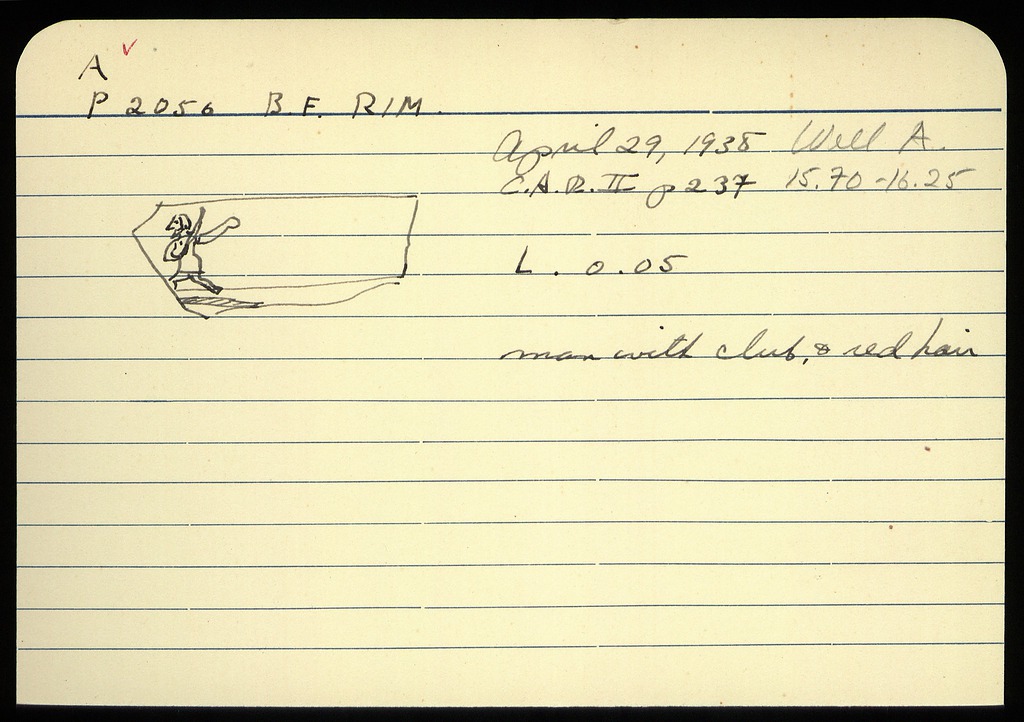 A
P 2056 B.F. RIM.
April 29, 1938 Well A.
C.A.R. II p 237 15.70-16.25
L. 0.05
man with club, & red hair